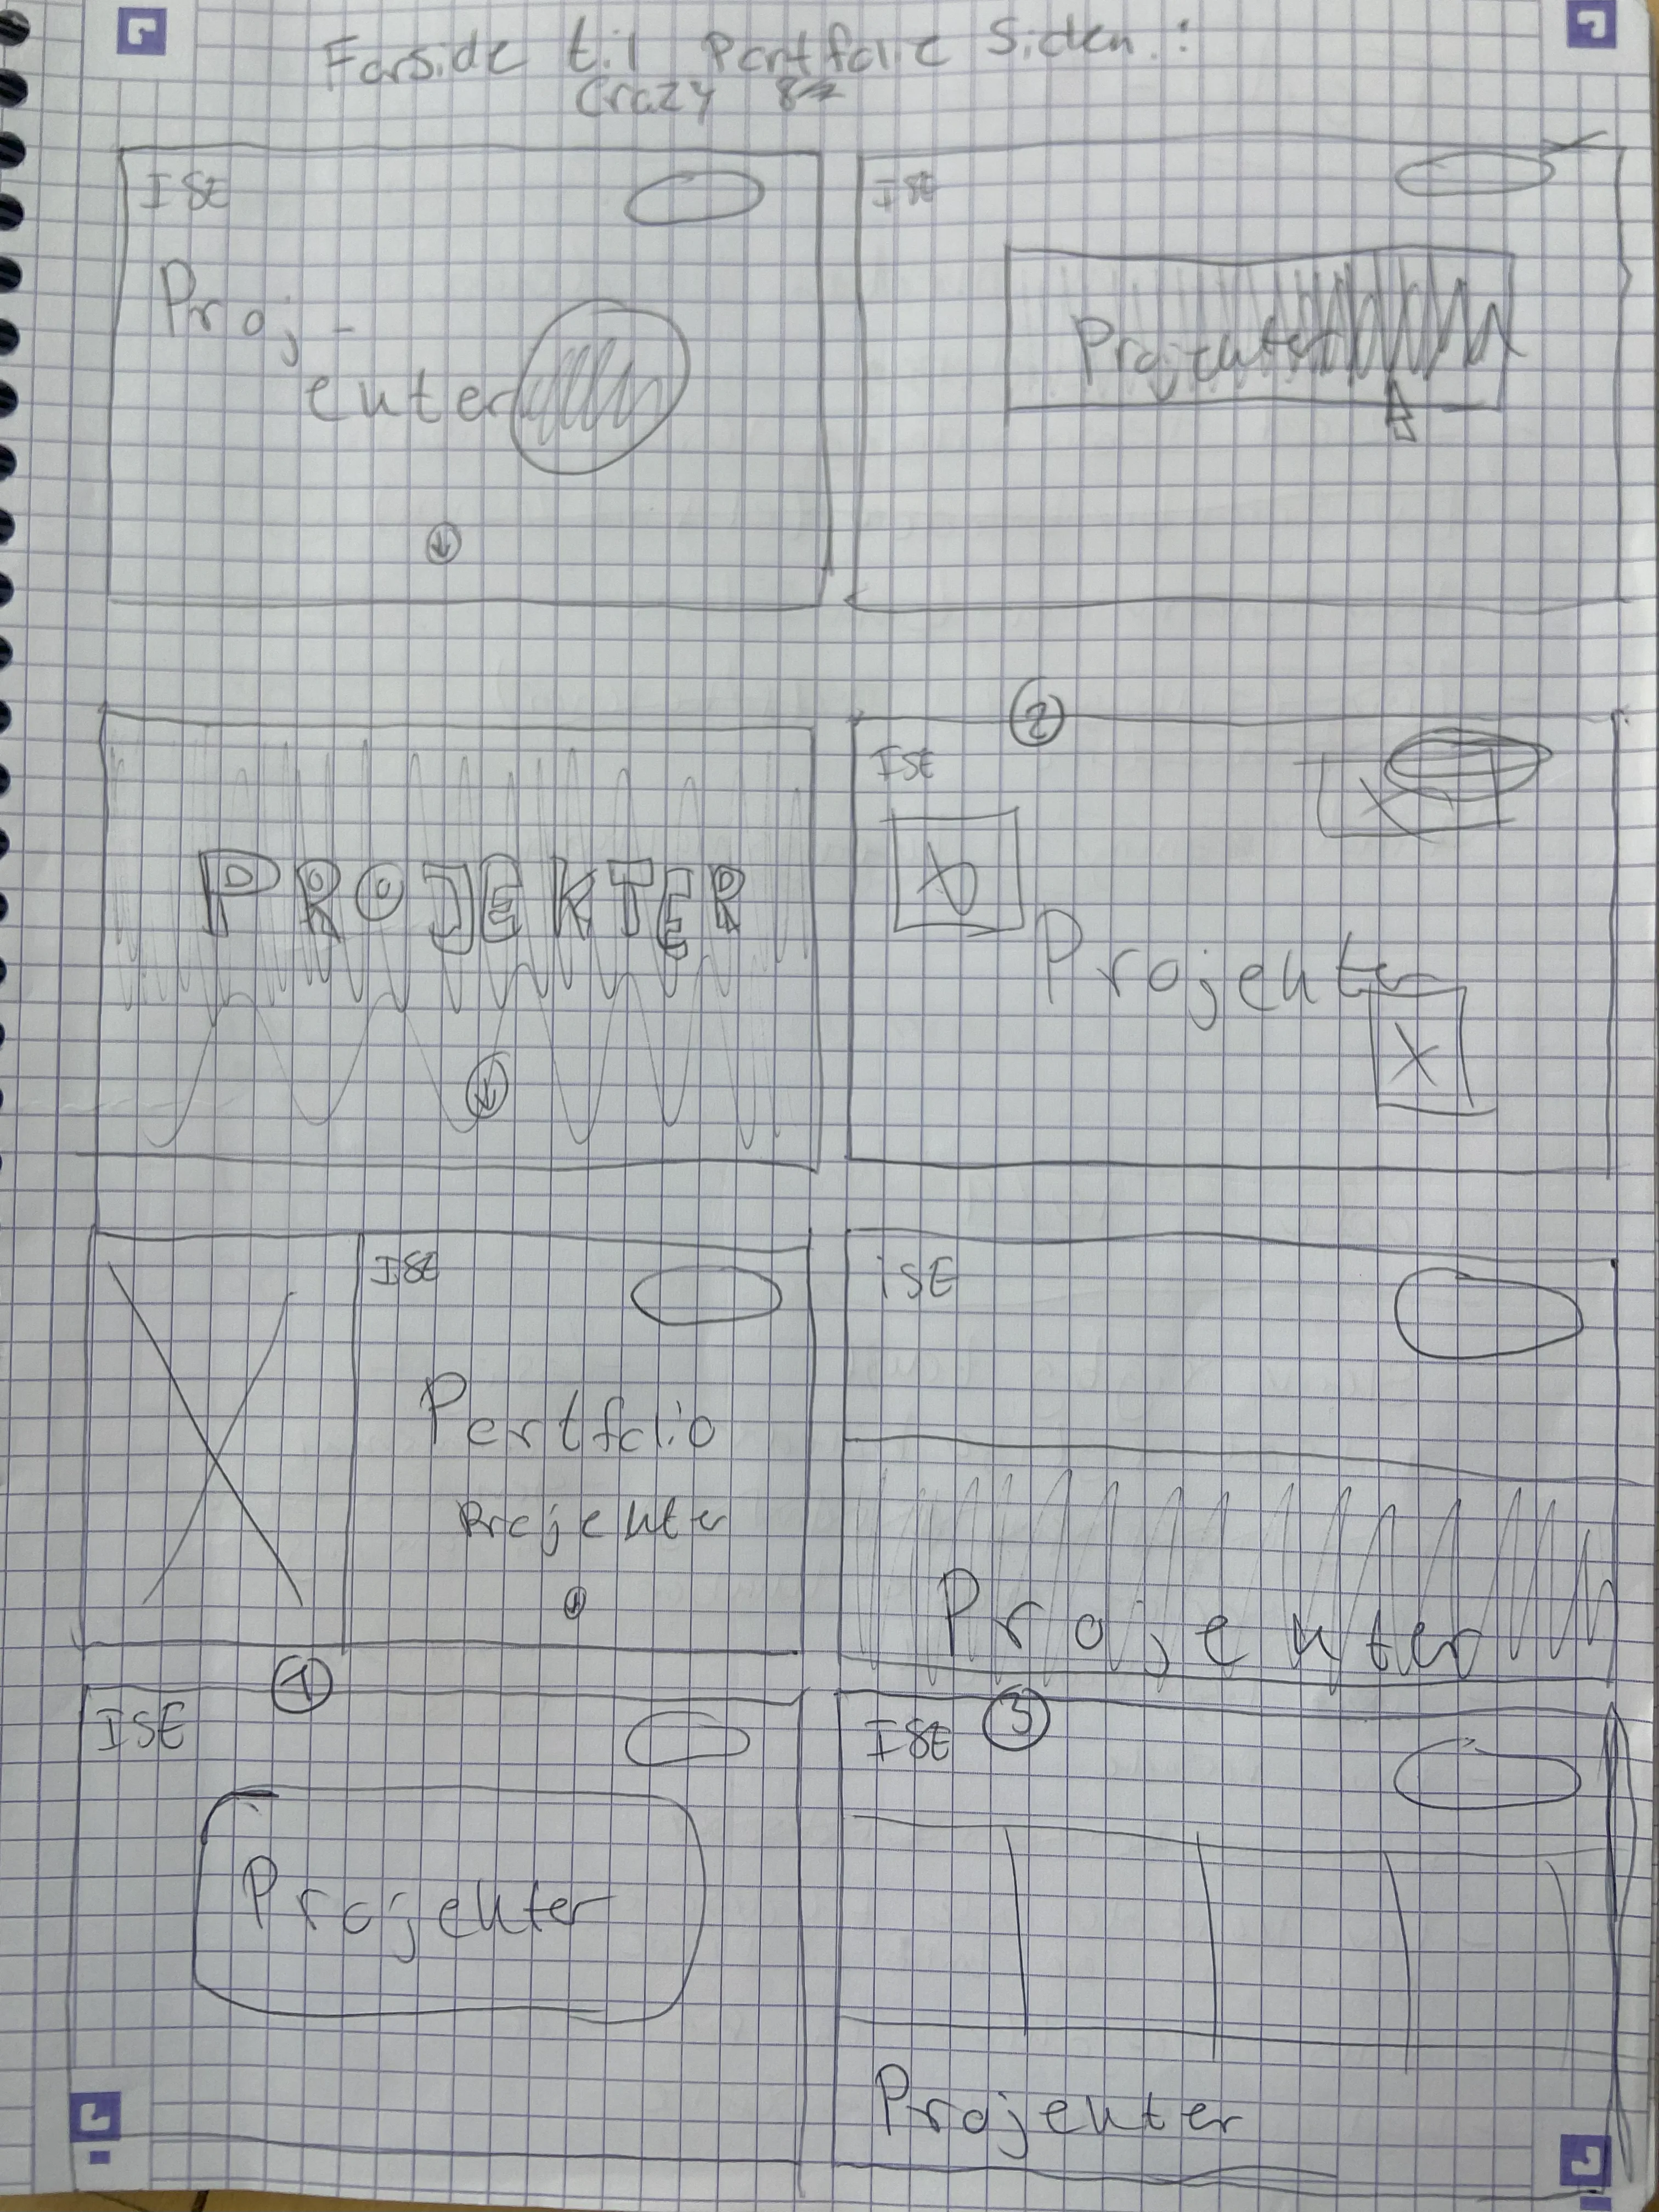 Forside til Portfolio Siden:
Crazy 8
ISE
Proj-
ekter
ISE
Projekter
PROJEKTER
2
ISE
Projekter
ISE
Portfolio
Projekter
iSE
Projekter
1
ISE
Projekter
3
ISE
Projekter